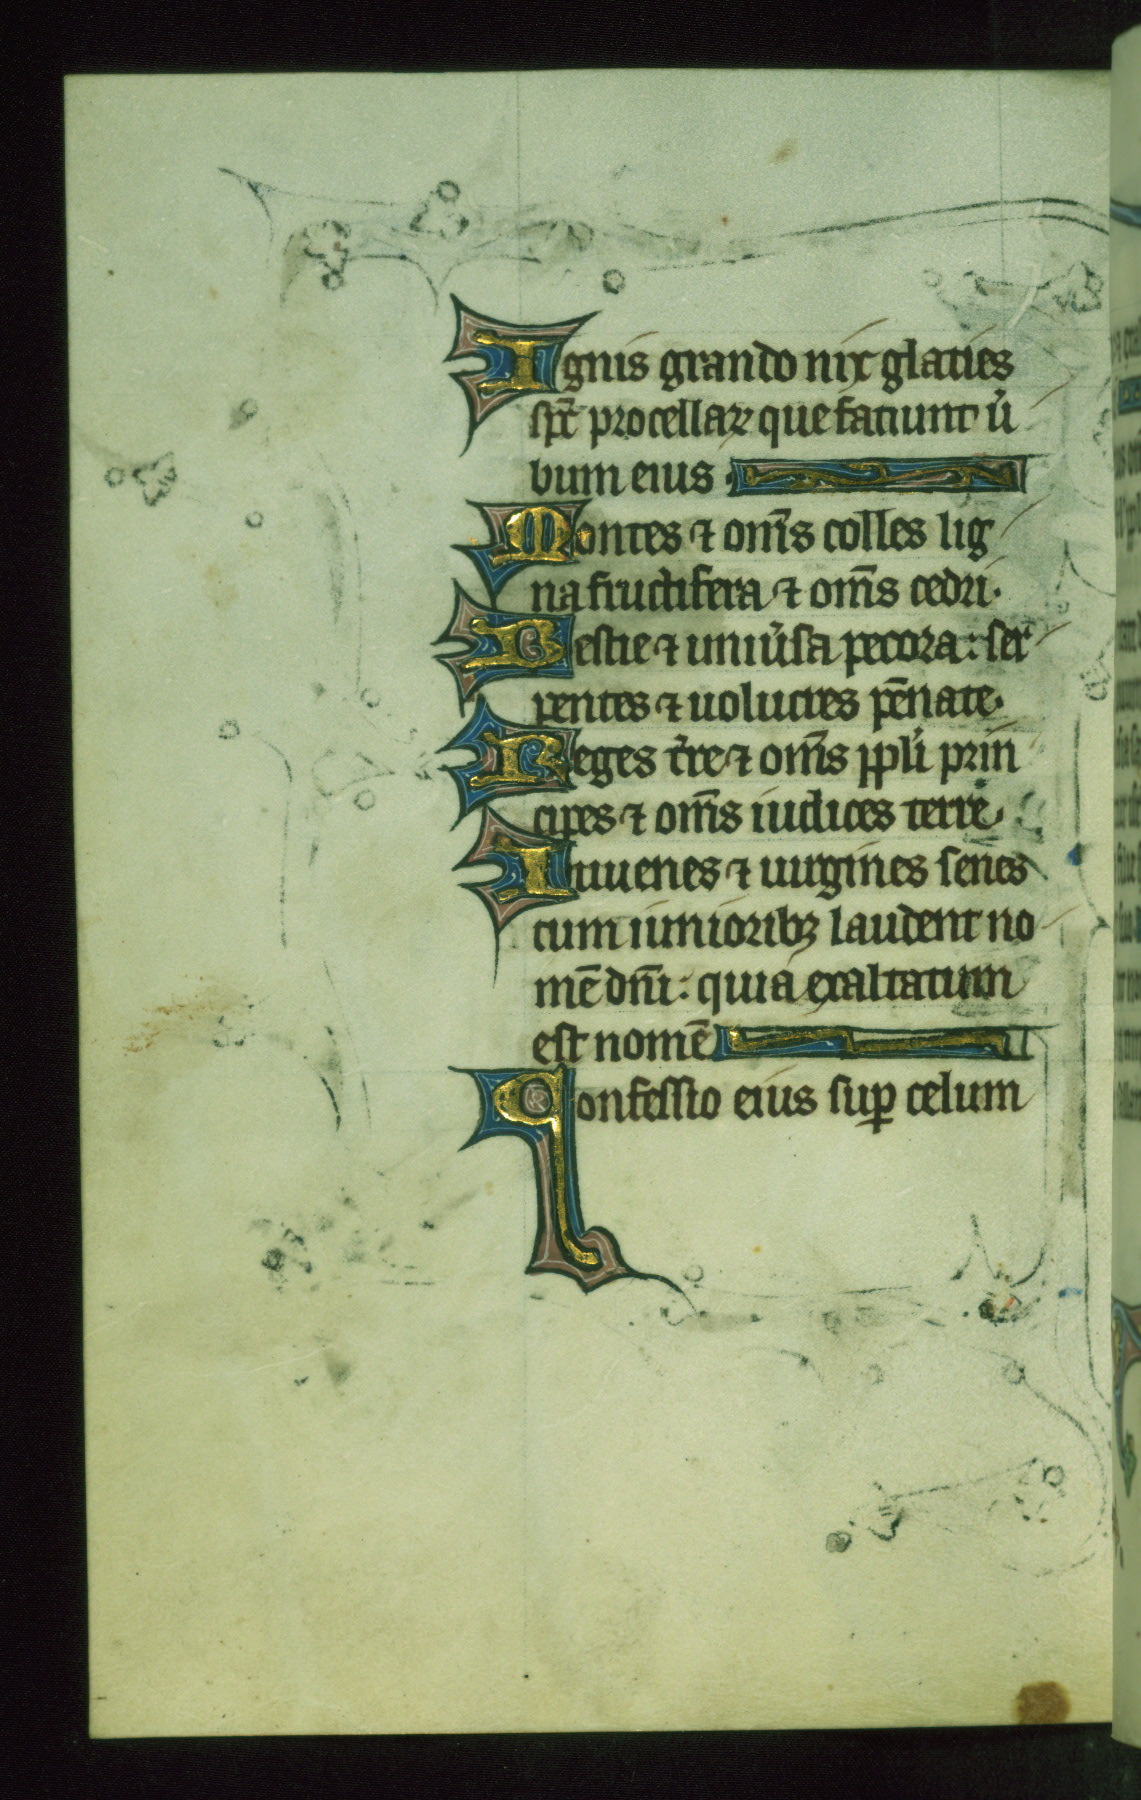 Ignis grando nix glacies
sp̄c procellaꝝ que faciunt u̓
bum eius
Montes ⁊ om̄s colles lig
na fructifera ⁊ om̄s cedri.
Bestie ⁊ uniu̓sa pecora: ser
pentes ⁊ uolucres pēnate.
Reges t̓re ⁊ om̄s ppl̓i prin
cipes ⁊ om̄s iudices terre.
Iuuenes ⁊ uirgines senes
cum iunioribꝫ laudent no
mē dn̄i: quia exaltatum
est nomē
Confessio eius suꝑ celum